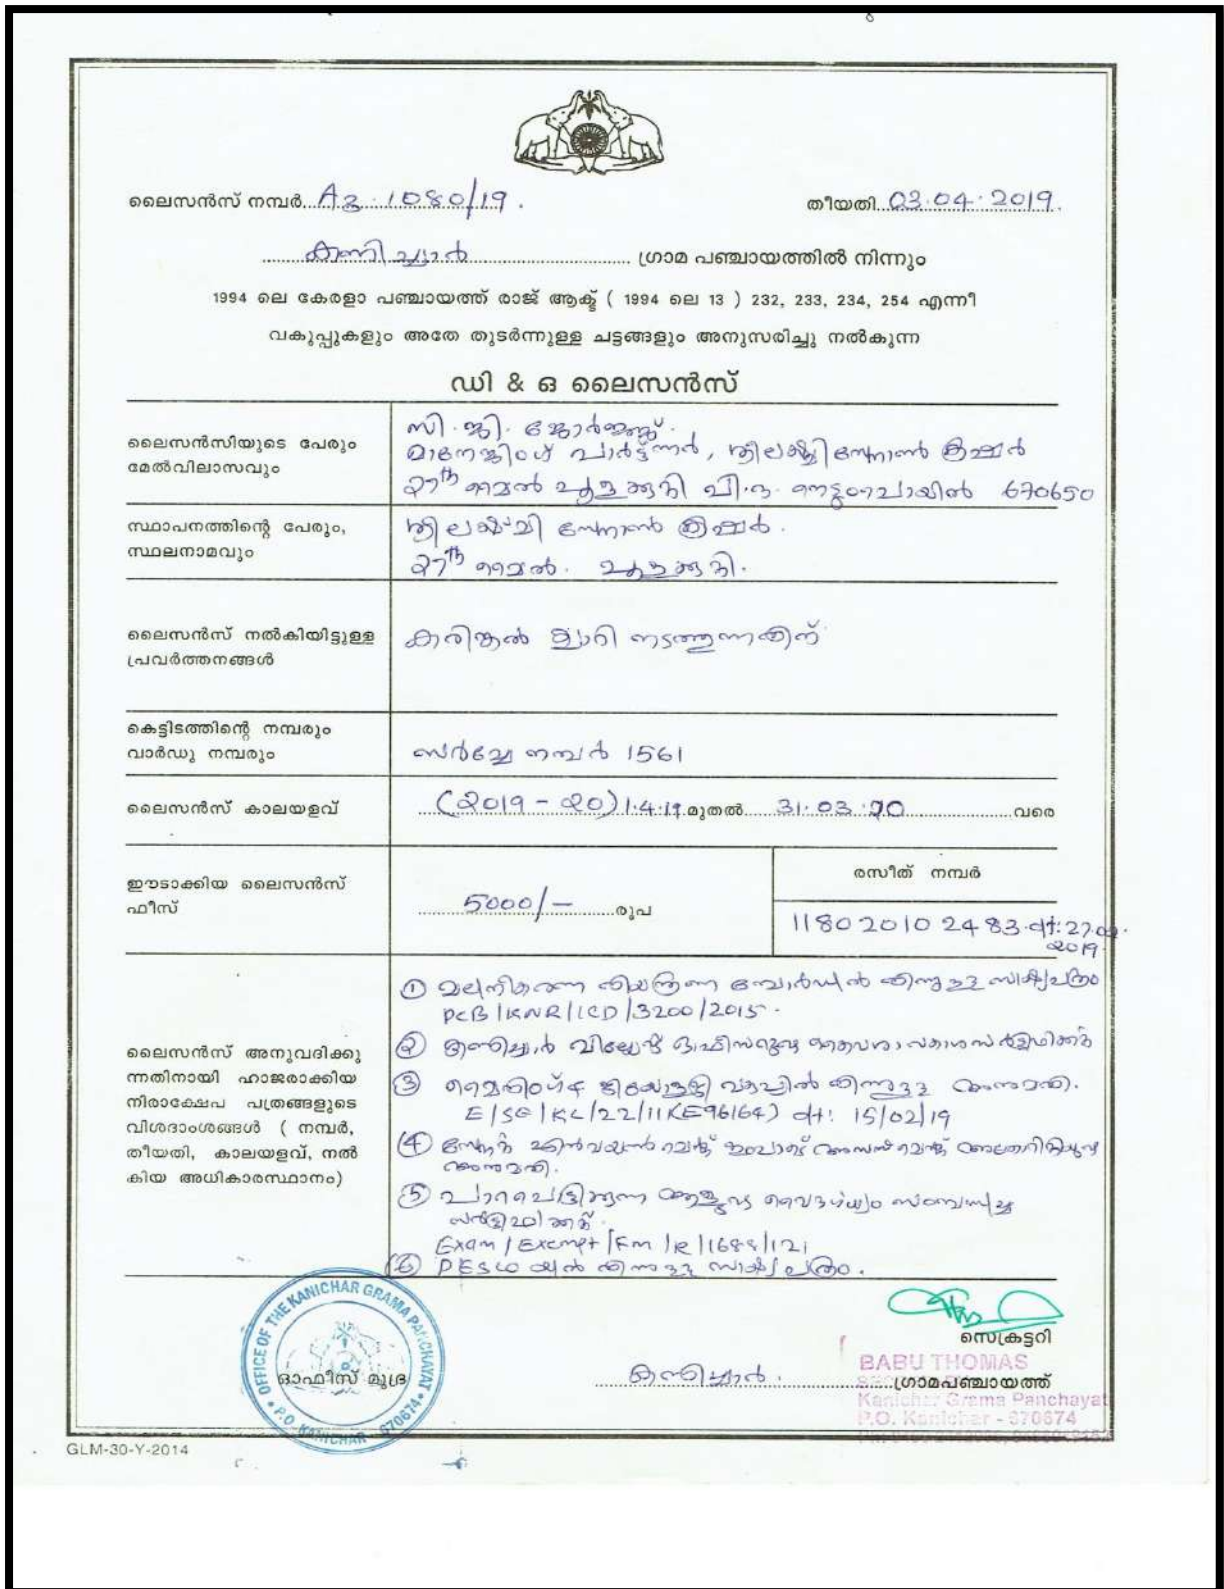 ലൈസൻസ് നമ്പർ A3-1080/19. തീയതി 03.04.2019.
കണിച്ചാർ ഗ്രാമ പഞ്ചായത്തിൽ നിന്നും
1994 ലെ കേരളാ പഞ്ചായത്ത് രാജ് ആക്ട് ( 1994 ലെ 13 ) 232, 233, 234, 254 എന്നീ
വകുപ്പുകളും അതേ തുടർന്നുള്ള ചട്ടങ്ങളും അനുസരിച്ചു നൽകുന്ന
ഡി & ഒ ലൈസൻസ്
ലൈസൻസിയുടെ പേരും
മേൽവിലാസവും
സി. ജി. ജോർജ്ജ്.
മാനേജിംഗ് പാർട്ട്ണർ, ശ്രീലക്ഷ്മി സ്റ്റോൺ ക്രഷർ
27th മൈൽ പൂളക്കുറ്റി പി.ഒ. നെടുംപൊയിൽ 670650
സ്ഥാപനത്തിന്റെ പേരും,
സ്ഥലനാമവും
ശ്രീ ലക്ഷ്മി സ്റ്റോൺ ക്രഷർ.
27th മൈൽ. പൂളക്കുറ്റി.
ലൈസൻസ് നൽകിയിട്ടുള്ള
പ്രവർത്തനങ്ങൾ
കരിങ്കൽ ക്വാറി നടത്തുന്നതിന്
കെട്ടിടത്തിന്റെ നമ്പരും
വാർഡു നമ്പരും
സർവ്വേ നമ്പർ 1561
ലൈസൻസ് കാലയളവ്
(2019-20) 1.4.19 മുതൽ 31.03.20 വരെ
ഈടാക്കിയ ലൈസൻസ്
ഫീസ്
5000/- രൂപ
രസീത് നമ്പർ
118020102483 dt: 27.
2019.
ലൈസൻസ് അനുവദിക്കു
ന്നതിനായി ഹാജരാക്കിയ
നിരാക്ഷേപ പത്രങ്ങളുടെ
വിശദാംശങ്ങൾ ( നമ്പർ,
തീയതി, കാലയളവ്, നൽ
കിയ അധികാരസ്ഥാനം)
① മലിനീകരണ നിയന്ത്രണ ബോർഡിൽ നിന്നുള്ള സാക്ഷ്യപത്രം
PCB/KNR/ICD/3200/2015.
② കണിച്ചാർ വില്ലേജ് ഓഫീസറുടെ കൈവശാവകാശ സർട്ടിഫിക്കറ്റ്
③ മൈനിംഗ് & ജിയോളജി വകുപ്പിൽ നിന്നുള്ള അനുമതി.
E/SE/KL/22/11(E96164) dt: 15/02/19
④ സ്റ്റേറ്റ് എൻവയൺമെന്റ് ഇംപാക്ട് അസസ്മെന്റ് അതോറിറ്റിയുടെ
അനുമതി.
⑤ പാറപൊട്ടിക്കുന്ന ആളുടെ വൈദഗ്ധ്യം സംബന്ധിച്ച
സർട്ടിഫിക്കറ്റ്.
Exam/Exempt/Fm/R/1688/121
⑥ PESO യിൽ നിന്നുള്ള സാക്ഷ്യപത്രം.
OFFICE OF THE KANICHAR GRAMA PANCHAYAT
P.O. KANICHAR - 670674
ഓഫീസ് മുദ്ര
സെക്രട്ടറി
BABU THOMAS
കണിച്ചാർ. ഗ്രാമപഞ്ചായത്ത്
Kanichar Grama Panchayat
P.O. Kanichar - 670674
GLM-30-Y-2014